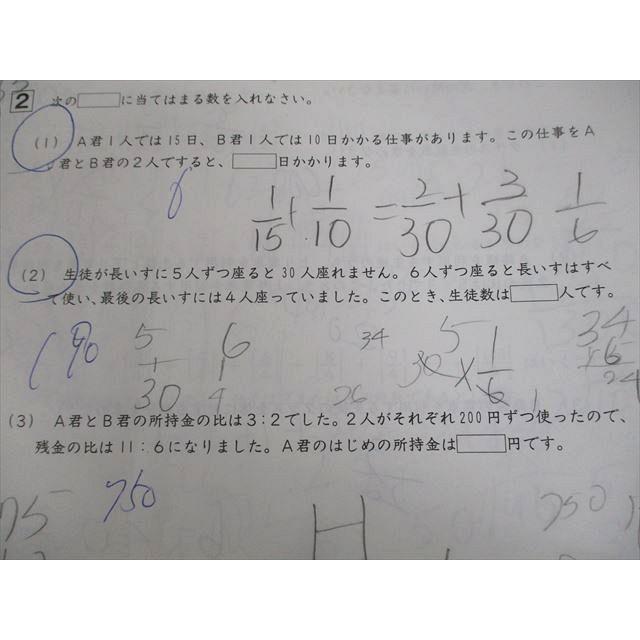 2 次の□に当てはまる数を入れなさい。
(1) A君1人では15日、B君1人では10日かかる仕事があります。この仕事をA
君とB君の2人ですると、□日かかります。
6 1/15 + 1/10 = 2/30 + 3/30 1/6
(2) 生徒が長いすに5人ずつ座ると30人座れません。6人ずつ座ると長いすはすべ
て使い、最後の長いすには4人座っていました。このとき、生徒数は□人です。
190 5 6 34 5 1/6 34
+ 30 ×6
30 4 26 24
(3) A君とB君の所持金の比は3:2でした。2人がそれぞれ200円ずつ使ったので、
残金の比は11:6になりました。A君のはじめの所持金は□円です。
750 750
75